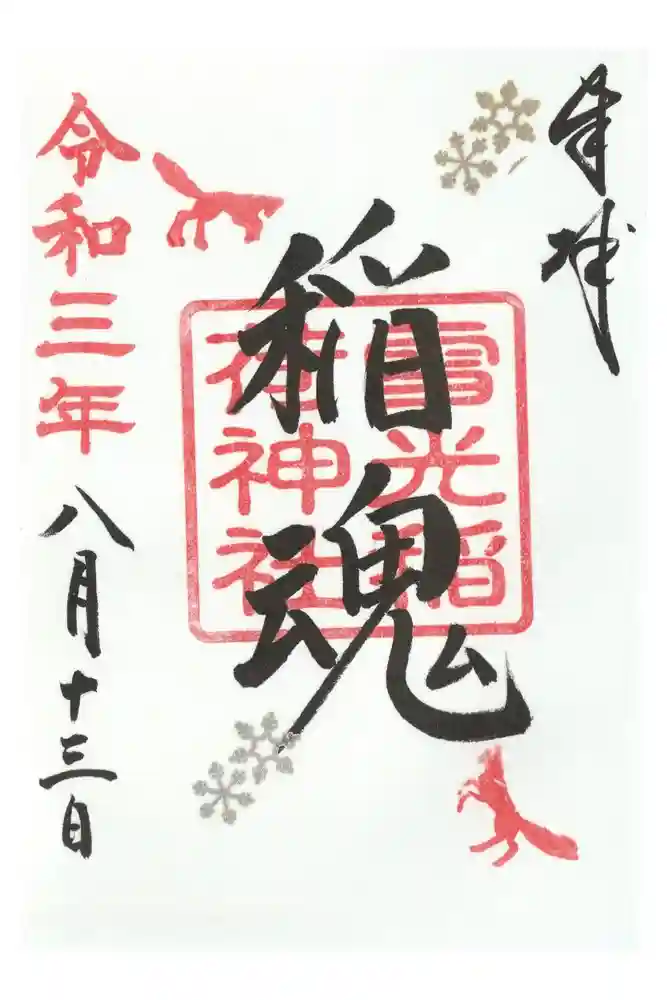 奉拝
稲魂
雪光稲
荷神社
令和三年
八月十三日